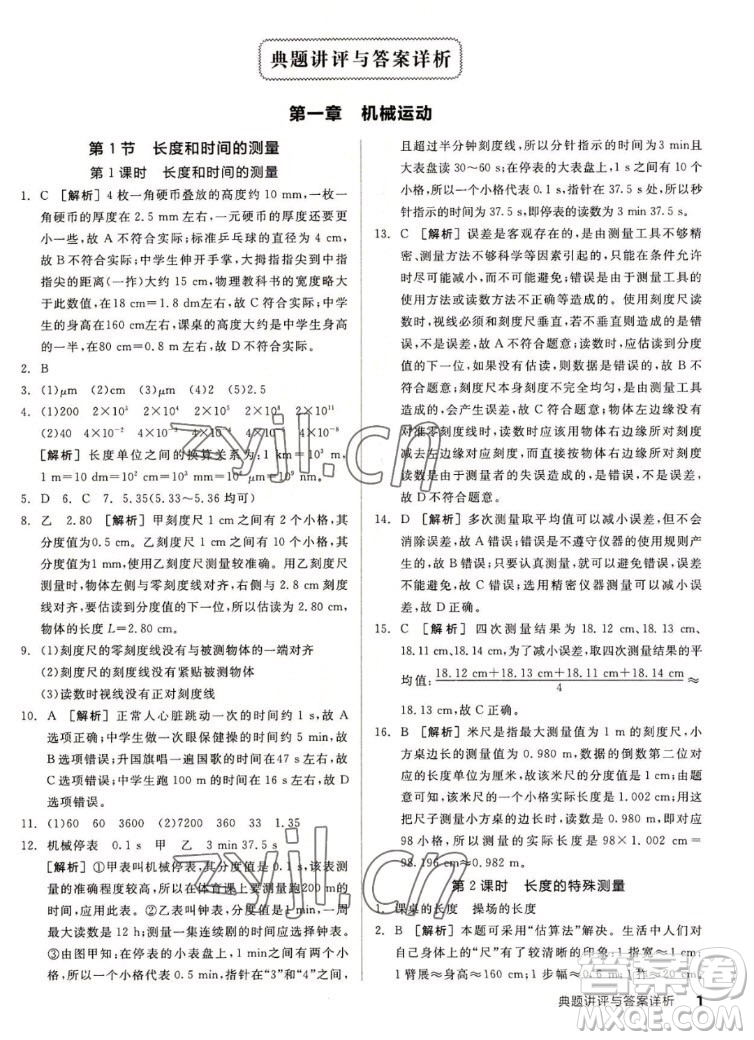 典题讲评与答案详析
第一章 机械运动
第1节 长度和时间的测量
第1课时 长度和时间的测量
1. C [解析]4枚一角硬币叠放的高度约10 mm,一枚一
角硬币的厚度在2.5 mm左右,一元硬币的厚度更
小一些,故A不符合实际;标准乒乓球的直径为4 cm,
故B不符合实际;中学生伸开手掌,大拇指指尖到中指
指尖的距离(一拃)大约为16 cm,物理教科书的宽度略大
于此数值,在18 cm=1.8 dm左右,故C符合实际;中学
生的身高在160 cm左右,课桌的高度大约是中学生身高
的一半,为80 cm=0.8 m,故D不符合实际。
2. B
3. (1)μm (2)cm (3)m (4)s (5)2.5
4. (1)200 2×10³ 2×10⁵ 2×10⁸ 2×10¹¹
(2)40 4×10⁻² 4×10⁻⁵ 4×10⁴ 4×10⁷
[解析]长度单位之间的换算关系为:1 km=10³ m,
1 m=10 dm=10² cm=10³ mm=10⁶ μm=10⁹ nm。
5. D 6. C 7. 5.35(5.33~5.36均可)
8. 乙 2.80 [解析]甲刻度尺1 cm之间有2个小格,其
分度值为0.5 cm。乙刻度尺1 cm之间有10个小格,其
分度值为0.1 cm。所以乙刻度尺测量较准确。乙刻度尺
测量时,物体左边与零刻度线对齐,右侧与2.8 cm刻度
线对齐,再估读出分度值的下一位,所以估读为2.80 cm,
物体的长度L=2.80 cm。
9. (1)刻度尺的零刻度线没有与被测物体的一端对齐
(2)刻度尺的刻度线没有紧贴被测物体
(3)读数时视线没有正对刻度线
10. A [解析]正常人心脏跳动一次的时间约1 s,故A
选项正确;中学生做一次眼保健操的时间约5 min,故
B选项错误;升国旗唱一遍国歌的时间在47 s左右,故
C选项错误;中学生跑100 m的时间在16 s左右,故D
选项错误。
11. (1)60 60 3600 (2)7200 33 1.35
12. 机械停表 0.1 s 甲 乙 3 min 37.5 s
[解析]①甲表叫机械停表,其分度值为0.1 s,测量的时
间相对比较准确,所以在体育课上测量跑200 m的
时间适合选用甲表。②乙表叫钟表,其分度值是1 min,一周
最大的数是12 h;测量一集连续剧的时间适合选用乙表。
③由图甲可知,在小表盘上,1 min之间有两个小
格,一个小格代表0.5 min,指针在“3”和“4”之间,
且超过半分钟刻度线,所以分针指示的时间为3 min且
大表盘读30~60 s;在大表盘上,1 s之间有10个
小格,所以一个小格代表0.1 s,所以秒针指示的时间为37.5 s,所以
秒针指示的时间为37.5 s,即停表的读数为3 min 37.5 s。
13. C [解析]误差是客观存在的,是由测量工具不够精密、
测量方法不够科学等因素引起的,只能在条件允许
时尽可能减小,而不可能避免;错误是由于测量工具
使用方法或读数方法不正确等造成的。使用刻度尺读
数时,视线必须和刻度尺垂直,若不垂直,就会造成错
误,而不是误差,所以A不符合题意;读数时应估读到分
度值的下一位,如果没有估读,就是错误,所以B不
符合题意;刻度尺本身刻度不完全均匀,是由测量工具引起的,
会产生误差,故C符合题意;物体左边缘没有
对准零刻度线,读数时应该用物体右边缘所对刻度
值减去左边缘所对刻度值,若直接用右边缘所对刻度
值,就是由于测量者的失误造成的,是错误,所以D不
符合题意。
14. D [解析]多次测量取平均值可以减小误差,但不会
消除误差,故A错误;错误是不遵守仪器的使用规则或
读数方法不正确等造成的,不是误差,故B错误;误差
不能避免。只要认真测量,就可以避免错误,不能避免误差,
故C错误;选用精密仪器测量可以减小误
差,故D正确。
15. C [解析]四次测量结果为18.12 cm、18.13 cm、
18.11 cm、18.14 cm,为了减小误差,取四次测量的平
均值:(18.12 cm+18.13 cm+18.11 cm+18.14 cm)/4≈
18.13 cm,故C正确。
16. B [解析]米尺是指最大测量值为1 m的刻度尺,小
方桌边长的测量值为0.980 m,因倒数第二位对
应的是分度值,则分度值是1 cm,由题意可知,
该尺的一个小格的实际长度是1.002 cm;用
这把尺子测量小方桌的边长为0.980 m,则对应
98小格,所以测量的实际长度是98×1.002 cm=
98.196 cm≈0.982 m。
第2课时 长度的特殊测量
1. 课桌的长度 操场的长度
2. B [解析]本题可采用“估算法”解决。生活中人们
对自己身体上的“尺”有了较清晰的印象:1指宽≈1 cm;
1臂展≈身高≈160 cm;1步幅≈0.6 m;1拃≈20 cm。
典题讲评与答案详析 1
zyjl.cn
zyjl.cn
答案圈